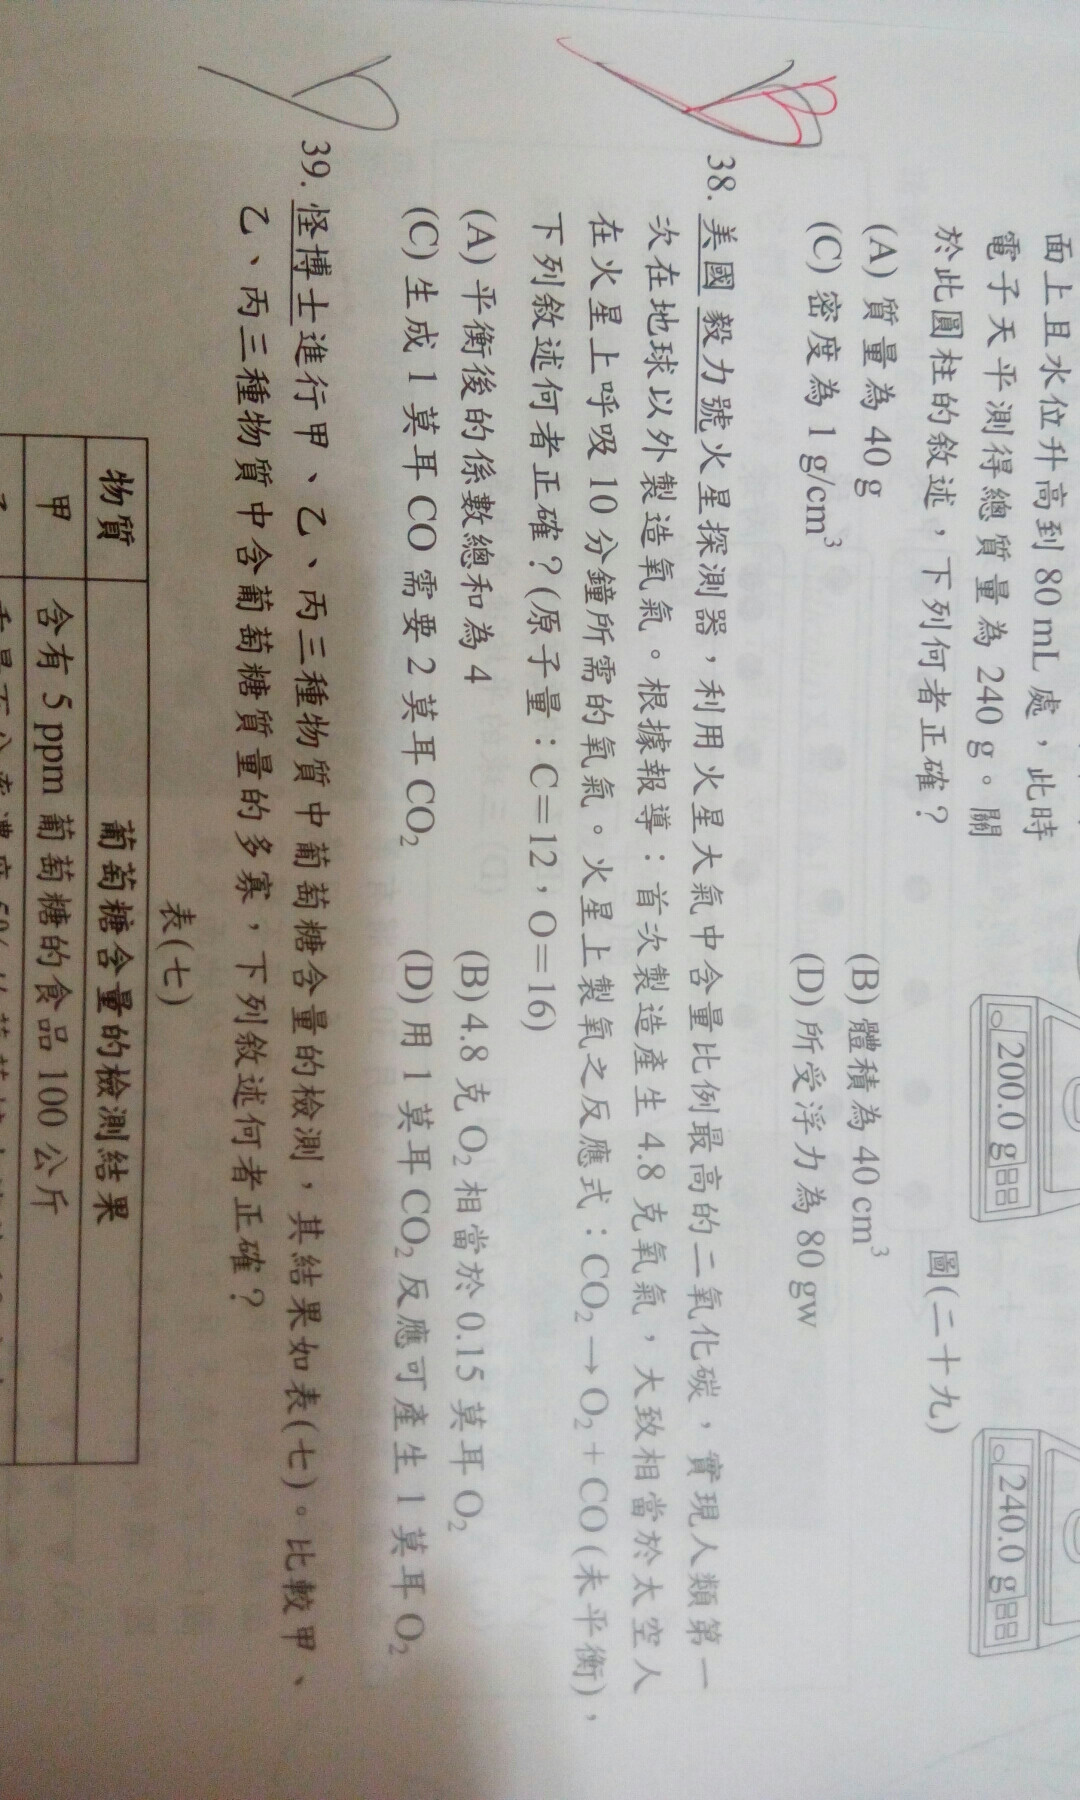 面上且水位升高到 80 mL 處，此時
電子天平測得總質量為 240 g。關
於此圓柱的敘述，下列何者正確？
200.0 g
240.0 g
圖(二十九)
(A) 質量為 40 g (B) 體積為 40 cm³
(C) 密度為 1 g/cm³ (D) 所受浮力為 80 gw
38. 美國 毅力號火星探測器，利用火星大氣中含量比例最高的二氧化碳，實現人類第一
次在地球以外製造氧氣。根據報導：首次製造產生 4.8 克氧氣，大致相當於太空人
在火星上呼吸 10 分鐘所需的氧氣。火星上製氧之反應式：CO₂ → O₂ + CO (未平衡)，
下列敘述何者正確？(原子量：C=12，O=16)
(A) 平衡後的係數總和為 4 (B) 4.8 克 O₂ 相當於 0.15 莫耳 O₂
(C) 生成 1 莫耳 CO 需要 2 莫耳 CO₂ (D) 用 1 莫耳 CO₂ 反應可產生 1 莫耳 O₂
39. 怪博士進行甲、乙、丙三種物質中葡萄糖含量的檢測，其結果如表(七)。比較甲、
乙、丙三種物質中含葡萄糖質量的多寡，下列敘述何者正確？
表(七)
物質 葡萄糖含量的檢測結果
甲 含有 5 ppm 葡萄糖的食品 100 公斤